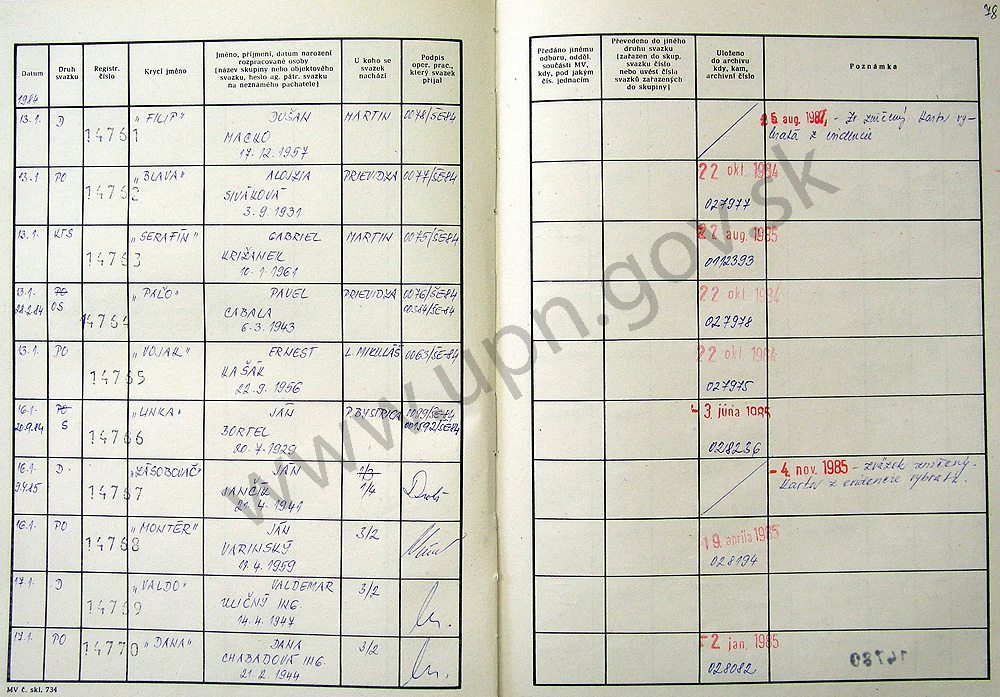 78
Datum
Druh svazku
Registr. číslo
Krycí jméno
Jméno, příjmení, datum narození rozpracované osoby (název skupiny nebo objektového svazku, heslo ag. pátr. svazku na neznámého pachatele)
U koho se svazek nachází
Podpis oper. prac., který svazek přijal
Předáno jinému odboru, odděl. součásti MV, kdy, pod jakým čís. jednacím
Převedeno do jiného druhu svazku (zařazen do skup. svazku číslo nebo uvést čísla svazků zařazených do skupiny)
Uloženo do archivu kdy, kam, archivní číslo
Poznámka
1984
13.1. D 14761 „FILIP" DUŠAN MARTIN 0078/ŠE-84
MACKO
17.12.1957
aug. - Zv zničený Karta vy-
bratá z evidencie
13.1 PO 14762 „BLAVA" ALOJZIA PRIEVIDZA 0077/ŠE-84
SIVÁKOVÁ
3.9.1931
22 okt. 1984
027977
13.1. KTS 14763 „SERAFÍN" GABRIEL MARTIN 0075/ŠE-84
KRIŽANEK
10.1.1961
22 aug. 1985
0112393
13.1. PO 14764 „PAĽO" PAVEL PRIEVIDZA 0076/ŠE-84
28.2.84 OS CABALA 00584/ŠE-84
6.3.1943
22 okt. 1984
027978
13.1. PO 14765 „VOJAK" ERNEST L. MIKULÁŠ 0063/ŠE-84
KAŠÁK
22.9.1956
22 okt. 1984
027975
16.1. PO 14766 „LINKA" JÁN P. BYSTRICA 0099/ŠE-84
20.9.84 S BORTEL 001592/ŠE-84
20.7.1929
- 3. júna 1985
028236
16.1. D. 14767 „ZÁSOBOVAČ" JÁN 1/3
9.4.85 JANČÍK 1/4
21.4.1941
- 4. nov. 1985 - zväzok zničený.
Karta z evidencie vybratá.
16.1. PO 14768 „MONTÉR" JÁN 3/2
VARINSKÝ
17.4.1959
19. apríla 1985
028194
17.1. D 14769 „VALDO" VALDEMAR 3/2
ULIČNÝ ING.
14.4.1947
17.1. PO 14770 „DANA" DANA 3/2
CHABADOVÁ ING.
21.2.1944
2 jan. 1985
028082
14780
MV č. skl. 734
www.upn.gov.sk